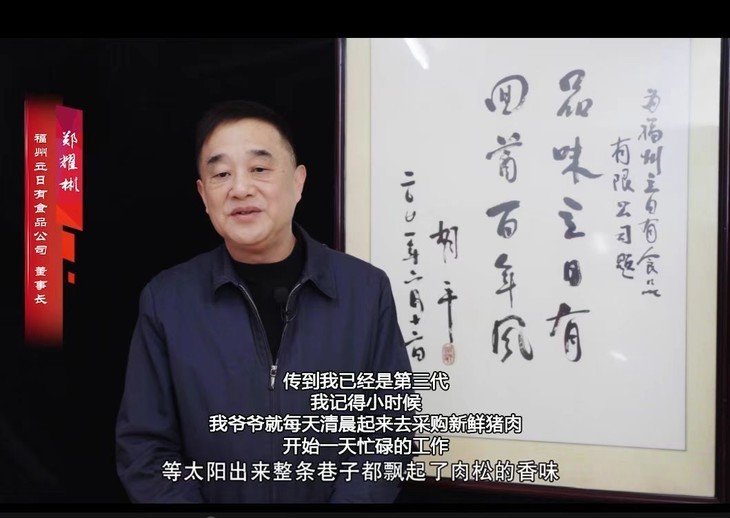 郑耀彬
福州立日有食品公司 董事长
为福州立日有食品
有限公司题
品味立日有
回首百年风
胡平
传到我已经是第三代
我记得小时候
我爷爷就每天清晨起来去采购新鲜猪肉
开始一天忙碌的工作
等太阳出来整条巷子都飘起了肉松的香味